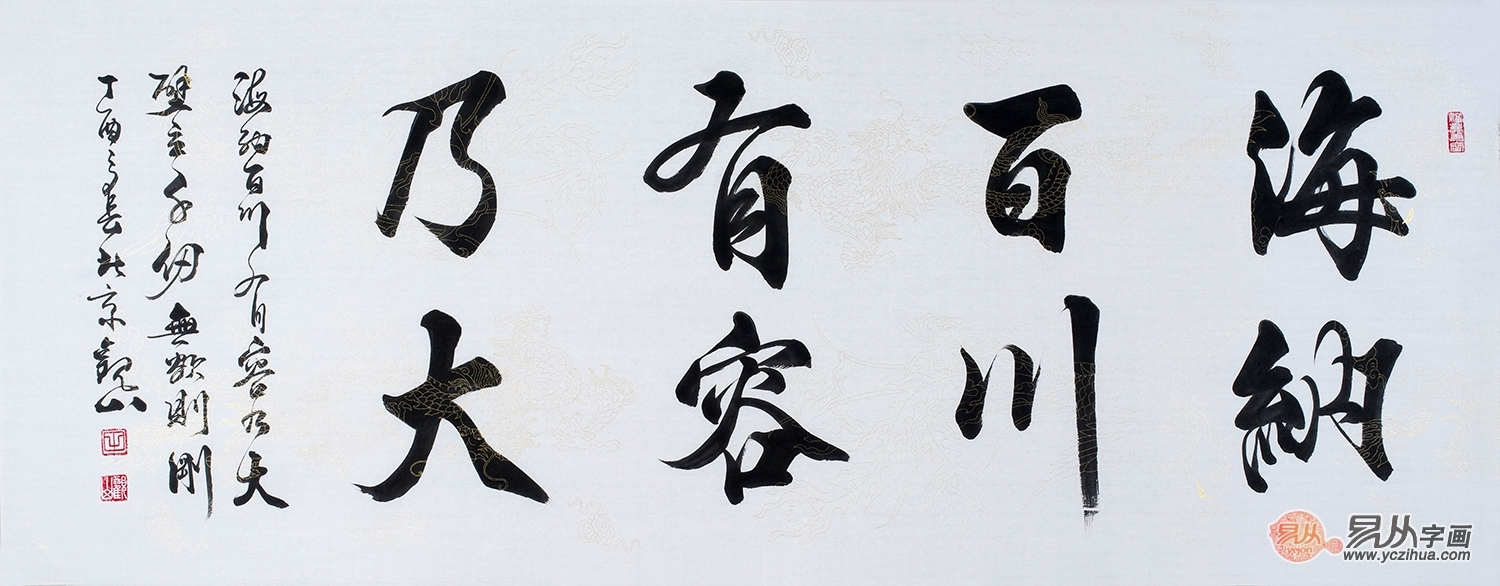 海納
百川
有容
乃大
海納百川有容乃大
壁立千仞無欲則剛
丁酉之春於京觀山
易从字画
www.yczihua.com